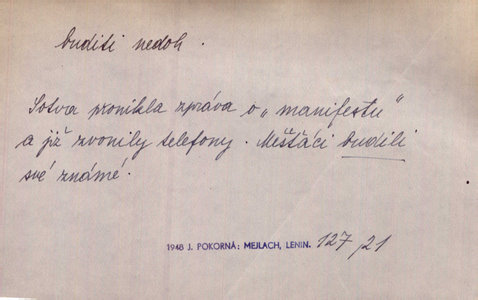 buditi nedok.
Sotva pronikla zpráva o „manifestu“
a již zvonily telefony. Měšťáci budili
své známé.
1948 J. POKORNÁ; MEJLACH, LENIN. 127,21